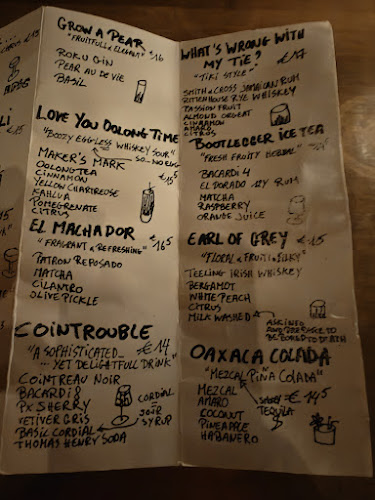 GROW A PEAR
"FRUITFULL & ELEGANT" €16
ROKU GIN
PEAR AU DE VIE
BASIL
LOVE YOU OOLONG TIME
"BOOZY EGGLESS WHISKEY SOUR"
SO... NO EGG
MAKER'S MARK
OOLONG TEA
CINNAMON
YELLOW CHARTREUSE
KAHLUA
POMEGRENATE
CITRUS
EL MACHADOR
"FRAGRANT & REFRESHING"
PATRON REPOSADO
MATCHA
CILANTRO
OLIVE PICKLE
COINTROUBLE
"A SOPHISTICATED... €14
... YET DELIGHTFULL DRINK"
COINTREAU NOIR
BACARDI 8
PX SHERRY
VETIVER GRIS
BASIL CORDIAL
THOMAS HENRY SODA
CORDIAL
=
SOUR
SYRUP
WHAT'S WRONG WITH
MY TIE? €17
"TIKI STYLE"
SMITH & CROSS JAMAICAN RUM
RITTENHOUSE RYE WHISKEY
PASSION FRUIT
ALMOND ORGEAT
CINNAMON
AMARO
CITRUS
BOOTLEGGER ICE TEA
"FRESH FRUITY HERBAL"
BACARDI 4
EL DORADO 12Y RUM
MATCHA
RASPBERRY
ORANGE JUICE
EARL OF GREY €15
"FLORAL & FRUITY & SILKY"
TEELING IRISH WHISKEY
BERGAMOT
WHITE PEACH
CITRUS
MILK WASHED
ASK INFO
AND PREPARE TO
BE BORED TO DEATH
OAXACA COLADA
"MEZCAL PIÑA COLADA"
MEZCAL
AMARO
COCONUT
PINEAPPLE
HABANERO
SASSY
TEQUILA